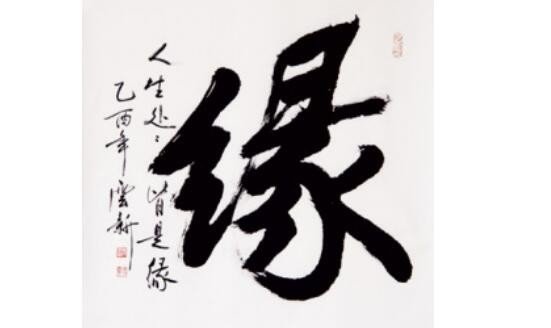 缘
人生处〻皆是缘
乙酉年
新